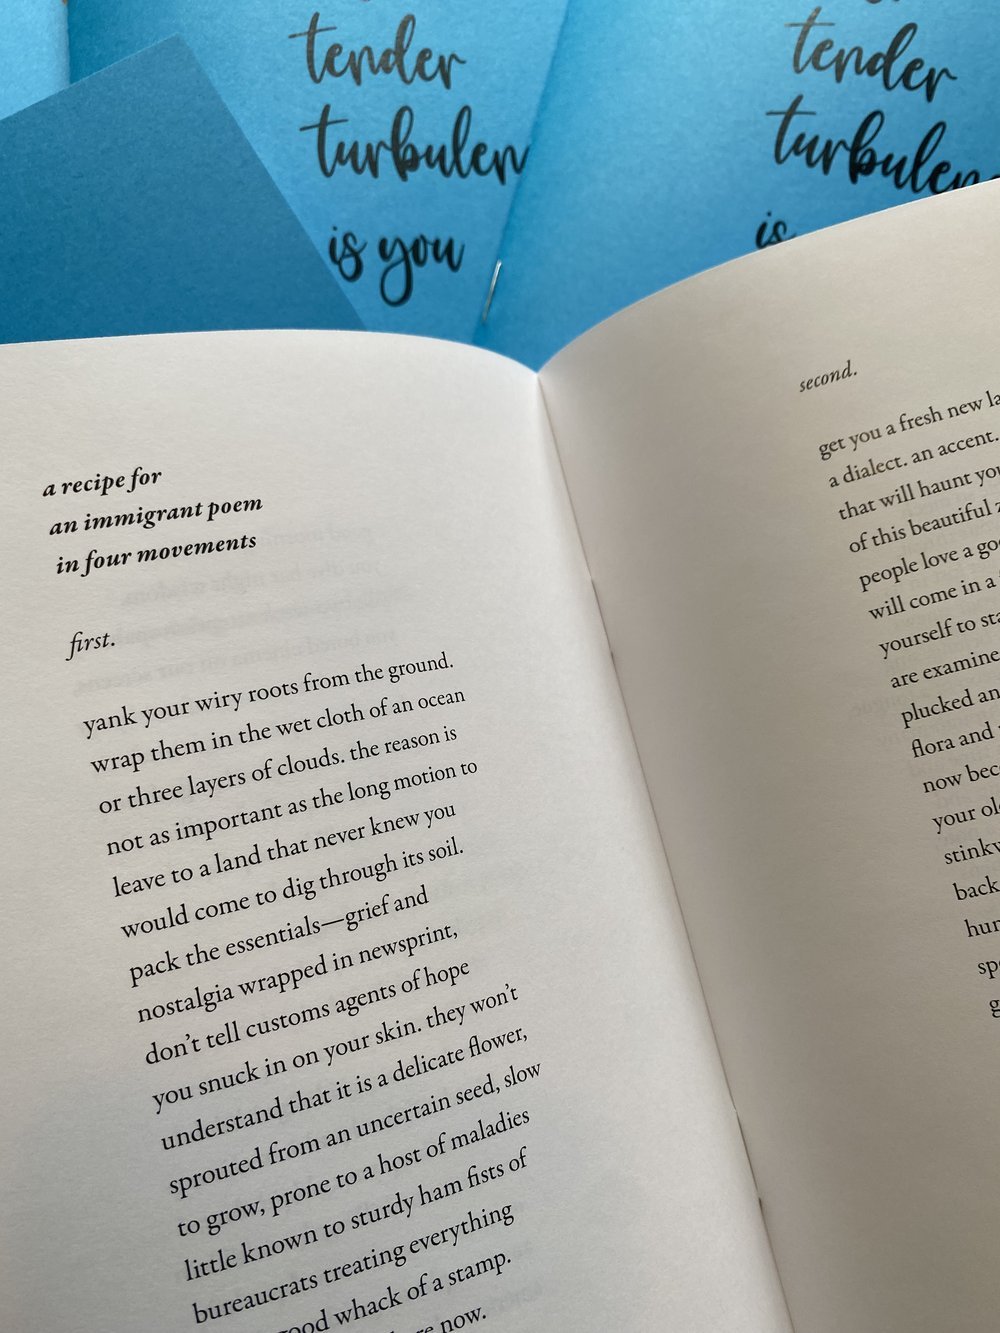 tender
turbulen
is you
tender
turbulen
is
a recipe for
an immigrant poem
in four movements
first.
yank your wiry roots from the ground.
wrap them in the wet cloth of an ocean
or three layers of clouds. the reason is
not as important as the long motion to
leave to a land that never knew you
would come to dig through its soil.
pack the essentials—grief and
nostalgia wrapped in newsprint,
don't tell customs agents of hope
you snuck in on your skin. they won't
understand that it is a delicate flower,
sprouted from an uncertain seed, slow
to grow, prone to a host of maladies
little known to sturdy ham fists of
bureaucrats treating everything
whack of a stamp.
now.
second.
get you a fresh new la
a dialect. an accent.
that will haunt you
of this beautiful
people love a go
will come in a
yourself to sta
are examine
plucked an
flora and
now bec
your ol
stinkw
back
hun
sp
g